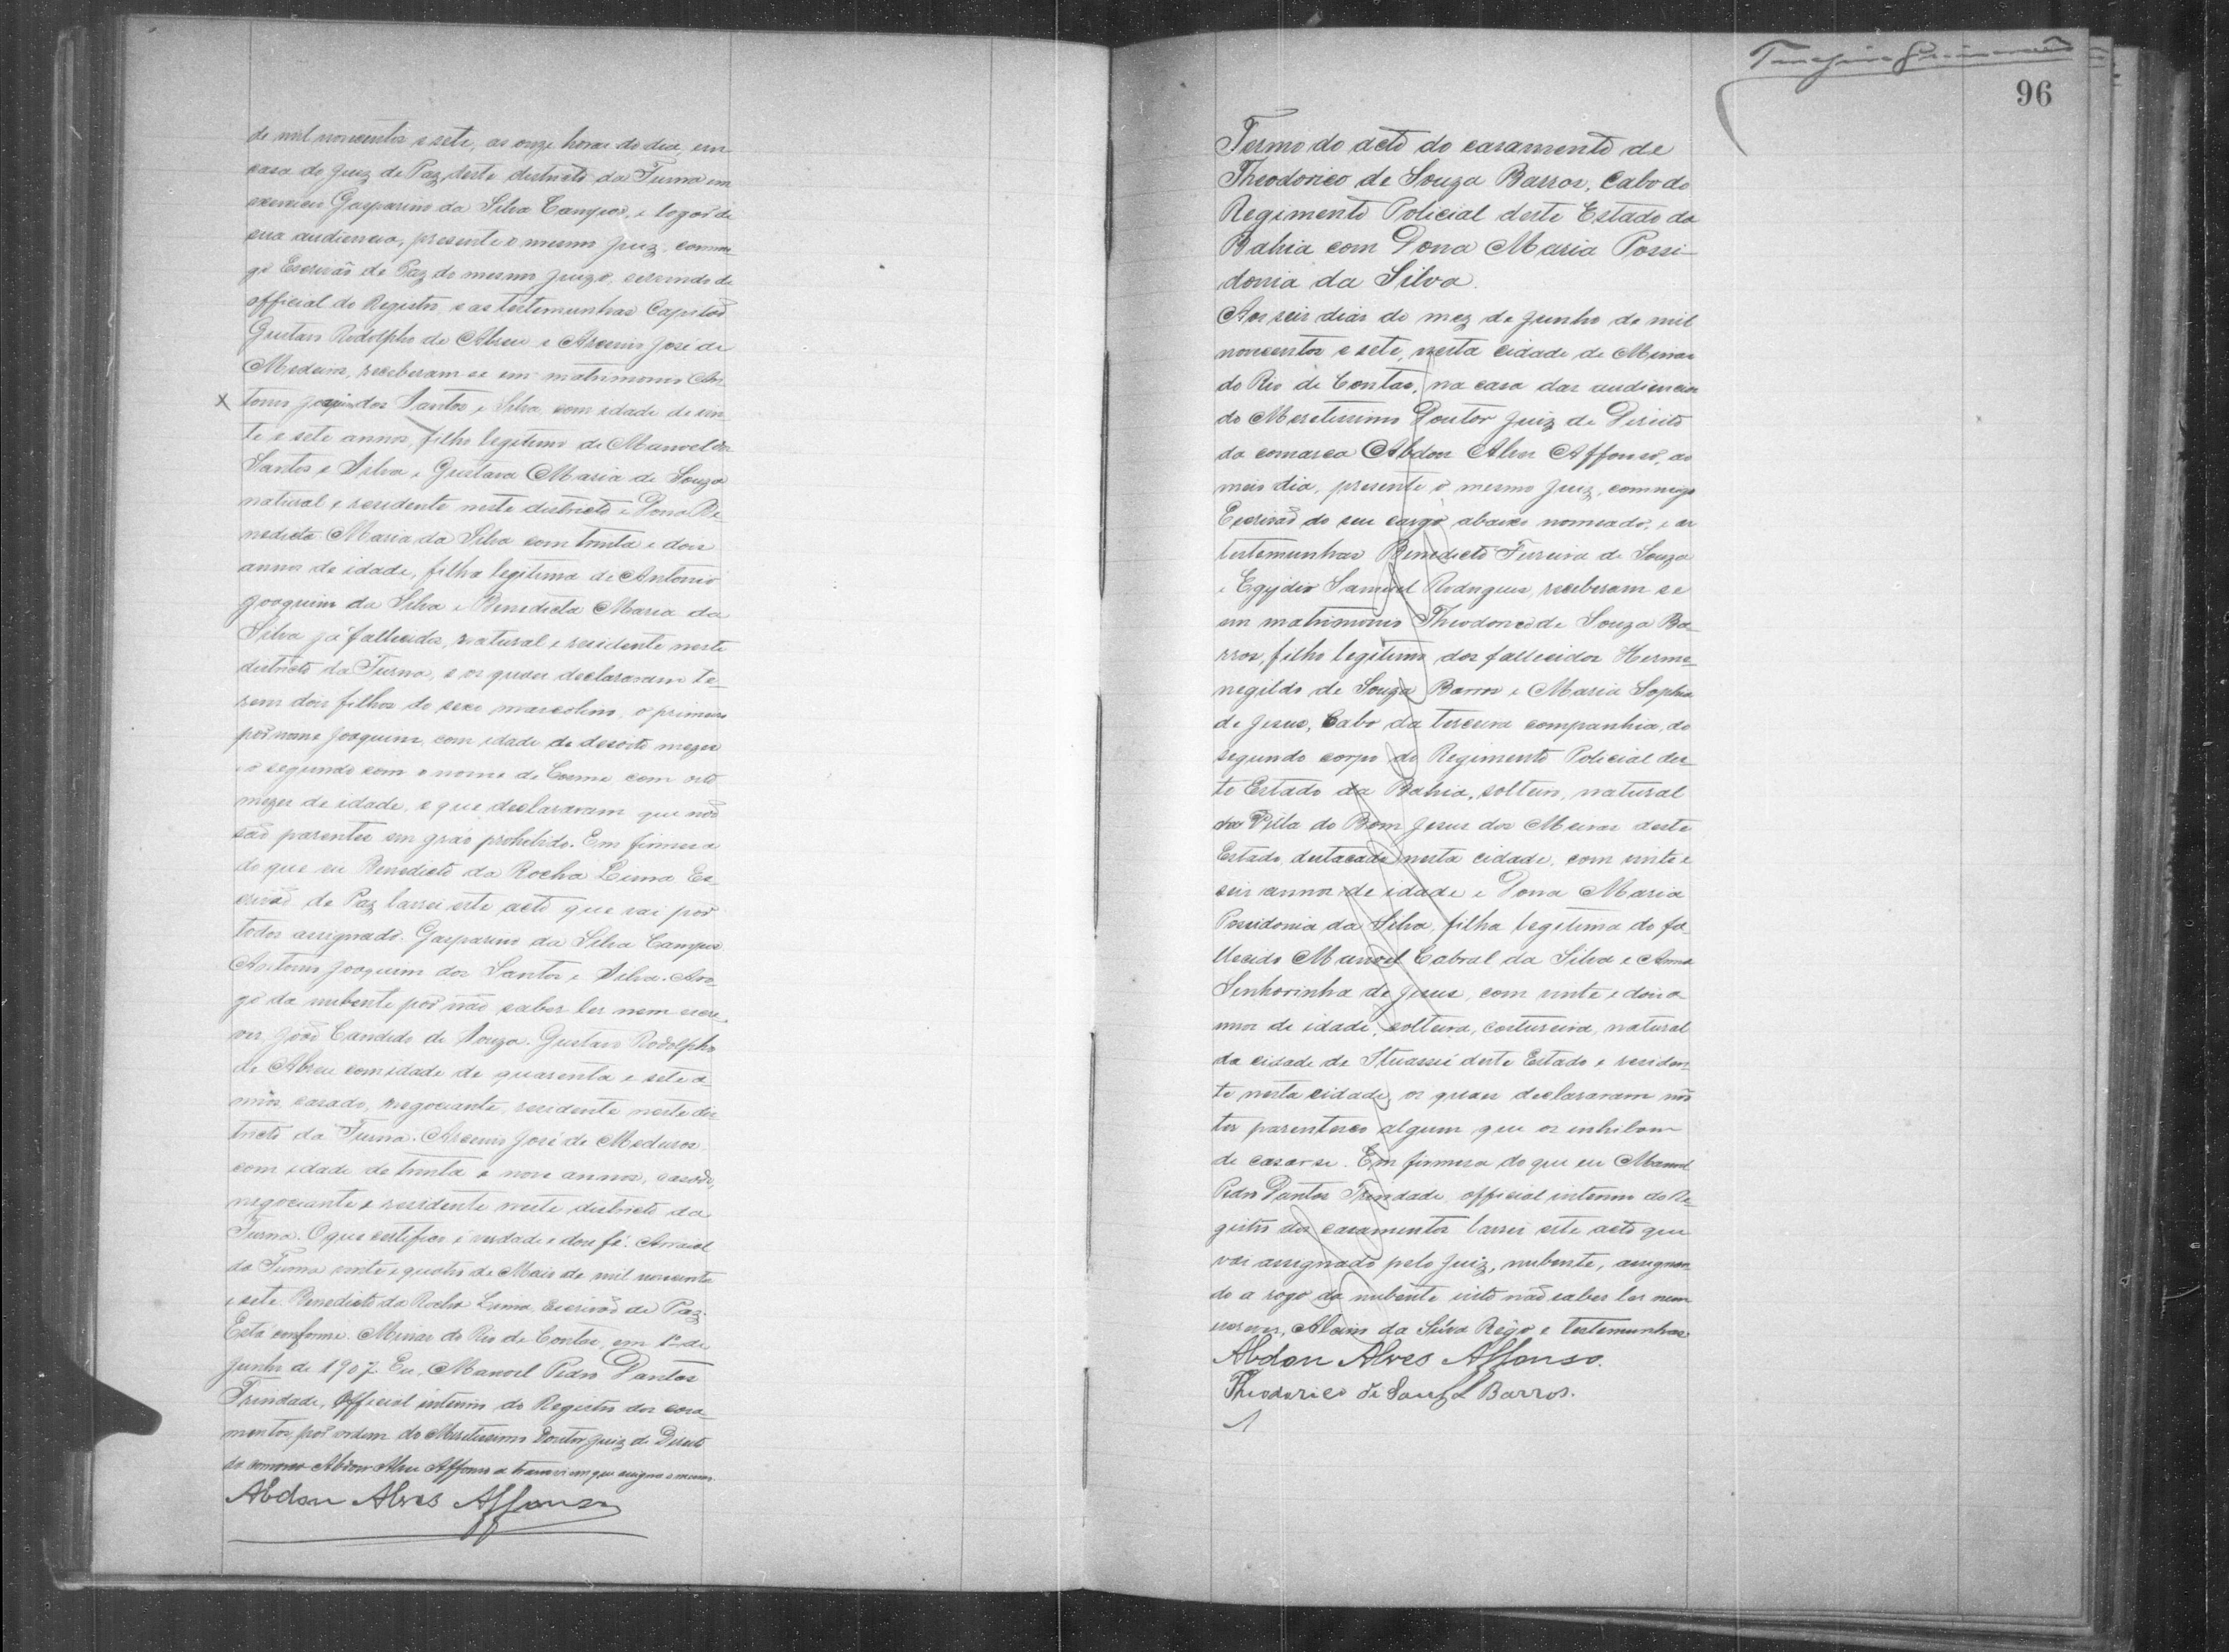 de mil novecentos e sete, as onze horas do dia, em
casa do Juiz de Paz deste districto da Furna em
exercicio Gasparino da Silva Campos, e logar de
sua audiencia, presente o mesmo Juiz, commi
go Escrivão de Paz do mesmo Juizo, servindo de
official do Registro, e as testemunhas Capitão
Gustavo Rodolpho de Abreu e Arsenio José de
Medeiros, receberam se em matrimonio An
x tonio Joaquim dos Santos e Silva, com idade de vin
te e sete annos, filho legitimo de Manoel dos
Santos e Silva e Gustava Maria de Souza
natural e residente neste districto e Dona Be
nedicta Maria da Silva com trinta e dois
annos de idade, filha legitima de Antonio
Joaquim da Silva e Benedicta Maria da
Silva já fallecida, natural e residente neste
districto da Furna, e os quaes declararam te-
rem dois filhos do sexo mascolino, o primeiro
por nome Joaquim, com idade de desoito mezes
e o segundo com o nome de Cosme com oito
mezes de idade, e que declararam que não
são parentes em gráo prohebido. Em firmesa
do que eu Benedicto da Rocha Lima Es-
crivão de Paz lavrei este acto que vai por
todos assignado. Gasparino da Silva Campos.
Antonio Joaquim dos Santos e Silva. Aro-
go da nubente por não saber ler nem escre-
ver, João Candido de Souza. Gustavo Rodolpho
de Abreu com idade de quarenta e sete a-
nnos, casado, negociante, residente neste dis
tricto da Furna. Arsenio José de Medeiros,
com idade de trinta e nove annos, casado,
negociante e residente neste districto da
Furna. O que certifico é verdade e dou fé. Arraial
da Furna vinte e quatro de Maio de mil novecentos
e sete. Benedicto da Rocha Lima, Escrivão de Paz.
Está conforme. Minas do Rio de Contas, em 1º de
Junho de 1907. Eu, Manoel Pedro Dantas
Trindade, Official interino do Registro dos casa-
mentos, por ordem do Meretissimo Doutor Juiz de Direito
da comarca Abdon Alves Affonso a transcrevi em que assigna o mesmo
Abdon Alves Affonso
96
Termo do acto do casamento de
Theodorico de Souza Barros, Cabo do
Regimento Policial deste Estado da
Bahia com Dona Maria Possi-
donia da Silva.
Aos seis dias do mez de Junho de mil
novecentos e sete, nesta cidade de Minas
do Rio de Contas, na casa das audiencias
do Meretissimo Doutor Juiz de Direito
da comarca Abdon Alves Affonso, ao
meio dia, presente o mesmo Juiz, commigo
Escrivão do seu cargo abaixo nomeado, e as
testemunhas Benedicto Ferreira de Souza
e Egydio Samuel Rodrigues, receberam se
em matrimonio Theodorico de Souza Ba-
rros, filho legitimo dos fallecidos Herme-
negildo de Souza Barros e Maria Sophia
de Jesus, Cabo da terceira companhia, do
segundo corpo do Regimento Policial des-
te Estado da Bahia, solteiro, natural
da Villa do Bom Jesus dos Meiras deste
Estado, destacado nesta cidade, com vinte e
seis annos de idade e Dona Maria
Possidonia da Silva, filha legitima do fa-
llecido Manoel Cabral da Silva e Anna
Senhorinha de Jesus, com vinte e dois a-
nnos de idade, solteira, costureira, natural
da cidade de Ituassú deste Estado e residen-
te nesta cidade, os quaes declararam não
ter parentesco algum que os inhibam
de casar se. Em firmesa do que eu Manoel
Pedro Dantas Trindade, official interino do Re-
gistro dos casamentos lavrei este acto que
vai assignado pelo Juiz, nubente, assignan-
do a rogo da nubente visto não saber ler nem
escrever, Aleixo da Silva Rêgo e testemunhas
Abdon Alves Affonso.
Theodorico de Souza Barros.